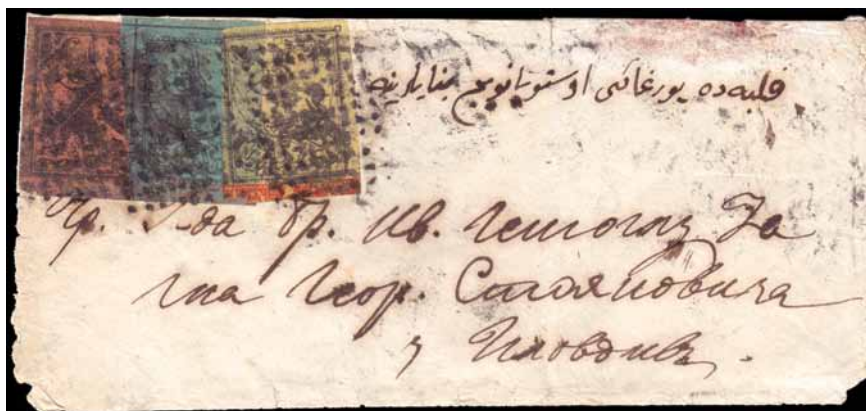 فلبه ده يورغاكى اوستويانويچ جنابلرينه
бр. Ив. Гешоглу За
гна Геор. Стояновича
у Пловдивъ.